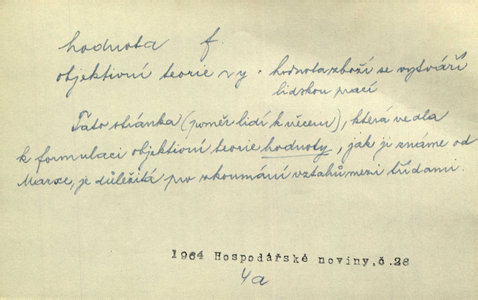 hodnota f.
objektivní teorie ~y. hodnota zboží se vytváří
lidskou prací
Tato stránka (poměr lidí k věcem), která vedla
k formulaci objektivní teorie hodnoty, jak ji známe od
Marxe, je důležitá pro zkoumání vztahů mezi třídami.
1964 Hospodářské noviny, č.28
4a